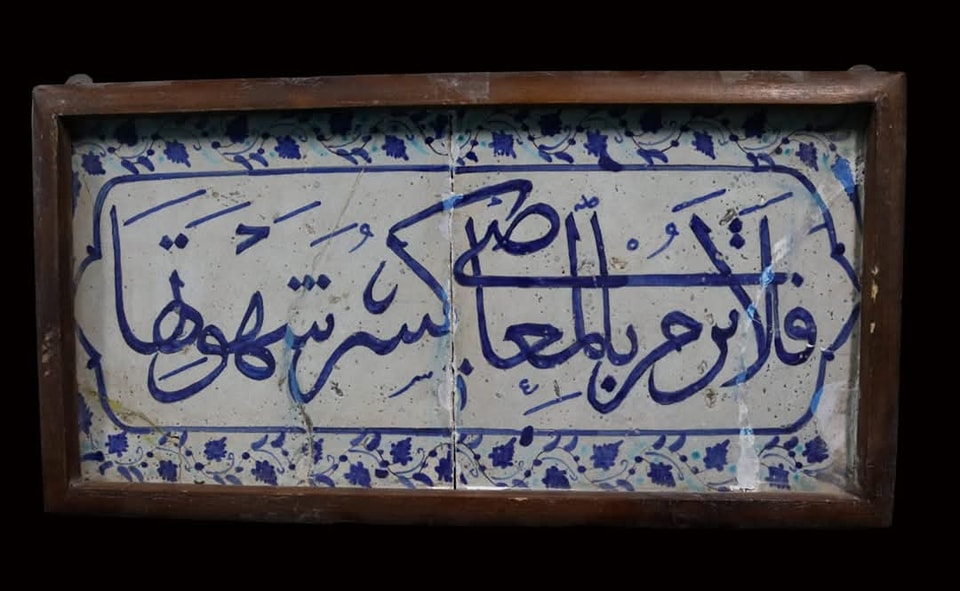 فَلَا تَرُمْ بِالْمَعَاصِي كَسْرَ شَهْوَتِهَا